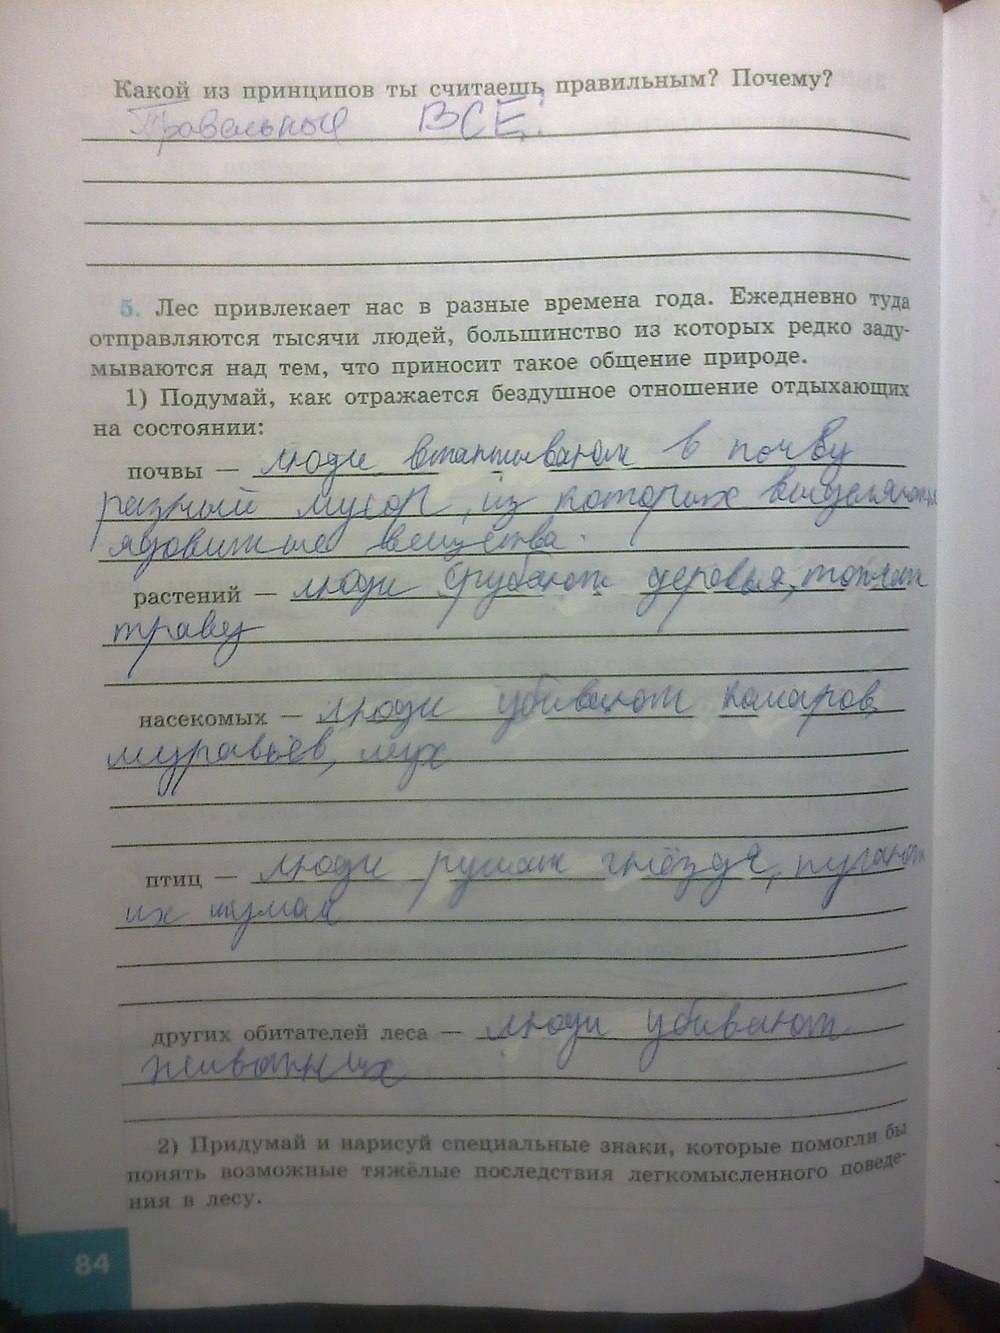 Какой из принципов ты считаешь правильным? Почему?
Правельные ВСЕ.
5. Лес привлекает нас в разные времена года. Ежедневно туда
отправляются тысячи людей, большинство из которых редко заду-
мываются над тем, что приносит такое общение природе.
1) Подумай, как отражается бездушное отношение отдыхающих
на состоянии:
почвы — люди втаптывают в почву
разный мусор, из которых выделяются
ядовитые вещества.
растений — люди срубают деревья, топчат
траву
насекомых — люди убивают комаров,
муравьёв, мух
птиц — люди рушат гнёзда, пугают
их шумом
других обитателей леса — люди убивают
животных
2) Придумай и нарисуй специальные знаки, которые помогли бы
понять возможные тяжёлые последствия легкомысленного поведе-
ния в лесу.
84